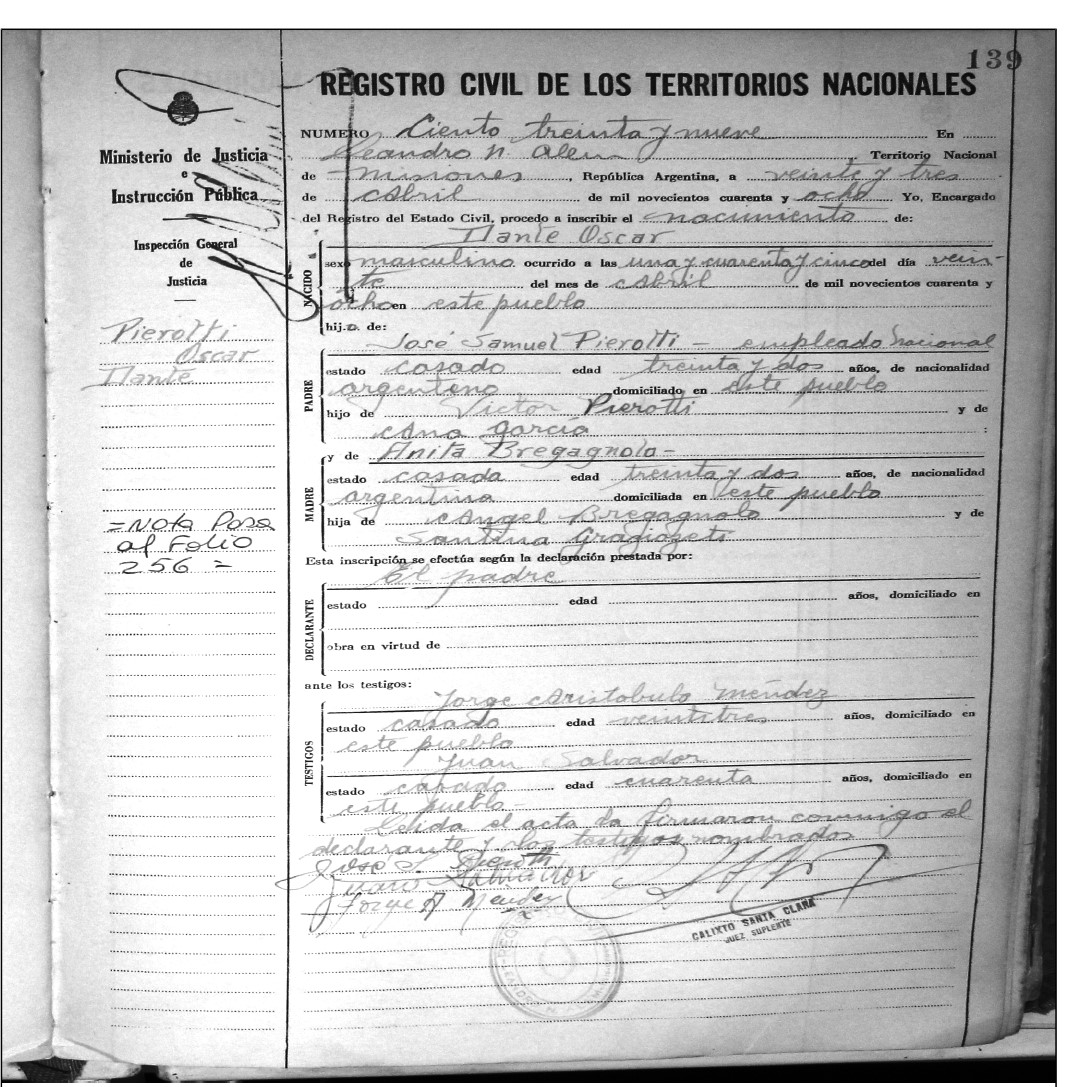 139
REGISTRO CIVIL DE LOS TERRITORIOS NACIONALES
Ministerio de Justicia
e
Instrucción Pública
Inspección General
de
Justicia
Pierotti
Oscar
Dante
=Nota Pasa
al Folio
256=
NUMERO Ciento treinta y nueve En
Leandro N. Alem, Territorio Nacional
de Misiones, República Argentina, a veinte y tres
de Abril de mil novecientos cuarenta y ocho Yo, Encargado
del Registro del Estado Civil, procedo a inscribir el nacimiento de:
Dante Oscar
NACIDO
sexo masculino ocurrido a las una y cuarenta y cinco del día vein-
te del mes de Abril de mil novecientos cuarenta y
ocho en este pueblo
hij.o. de:
José Samuel Pierotti - empleado Nacional
PADRE
estado casado edad treinta y dos años, de nacionalidad
argentino domiciliado en este pueblo
hijo de Victor Pierotti y de
Ana García :
y de Anita Bregagnolo-
MADRE
estado casada edad treinta y dos años, de nacionalidad
argentina domiciliada en este pueblo
hija de Angel Bregagnolo y de
Santina
Esta inscripción se efectúa según la declaración prestada por:
El padre
DECLARANTE
estado edad años, domiciliado en
obra en virtud de
ante los testigos:
Jorge Aristobulo Mendez
TESTIGOS
estado casado edad veintitres años, domiciliado en
este pueblo
Juan Salvador
estado casado edad cuarenta años, domiciliado en
este pueblo-
Leida el acta la firmaron conmigo el
declarante y los testigos nombrados
José S. Pierotti
Juan Salvador
Jorge A Mendez
CALIXTO SANTA CLARA
JUEZ SUPLENTE